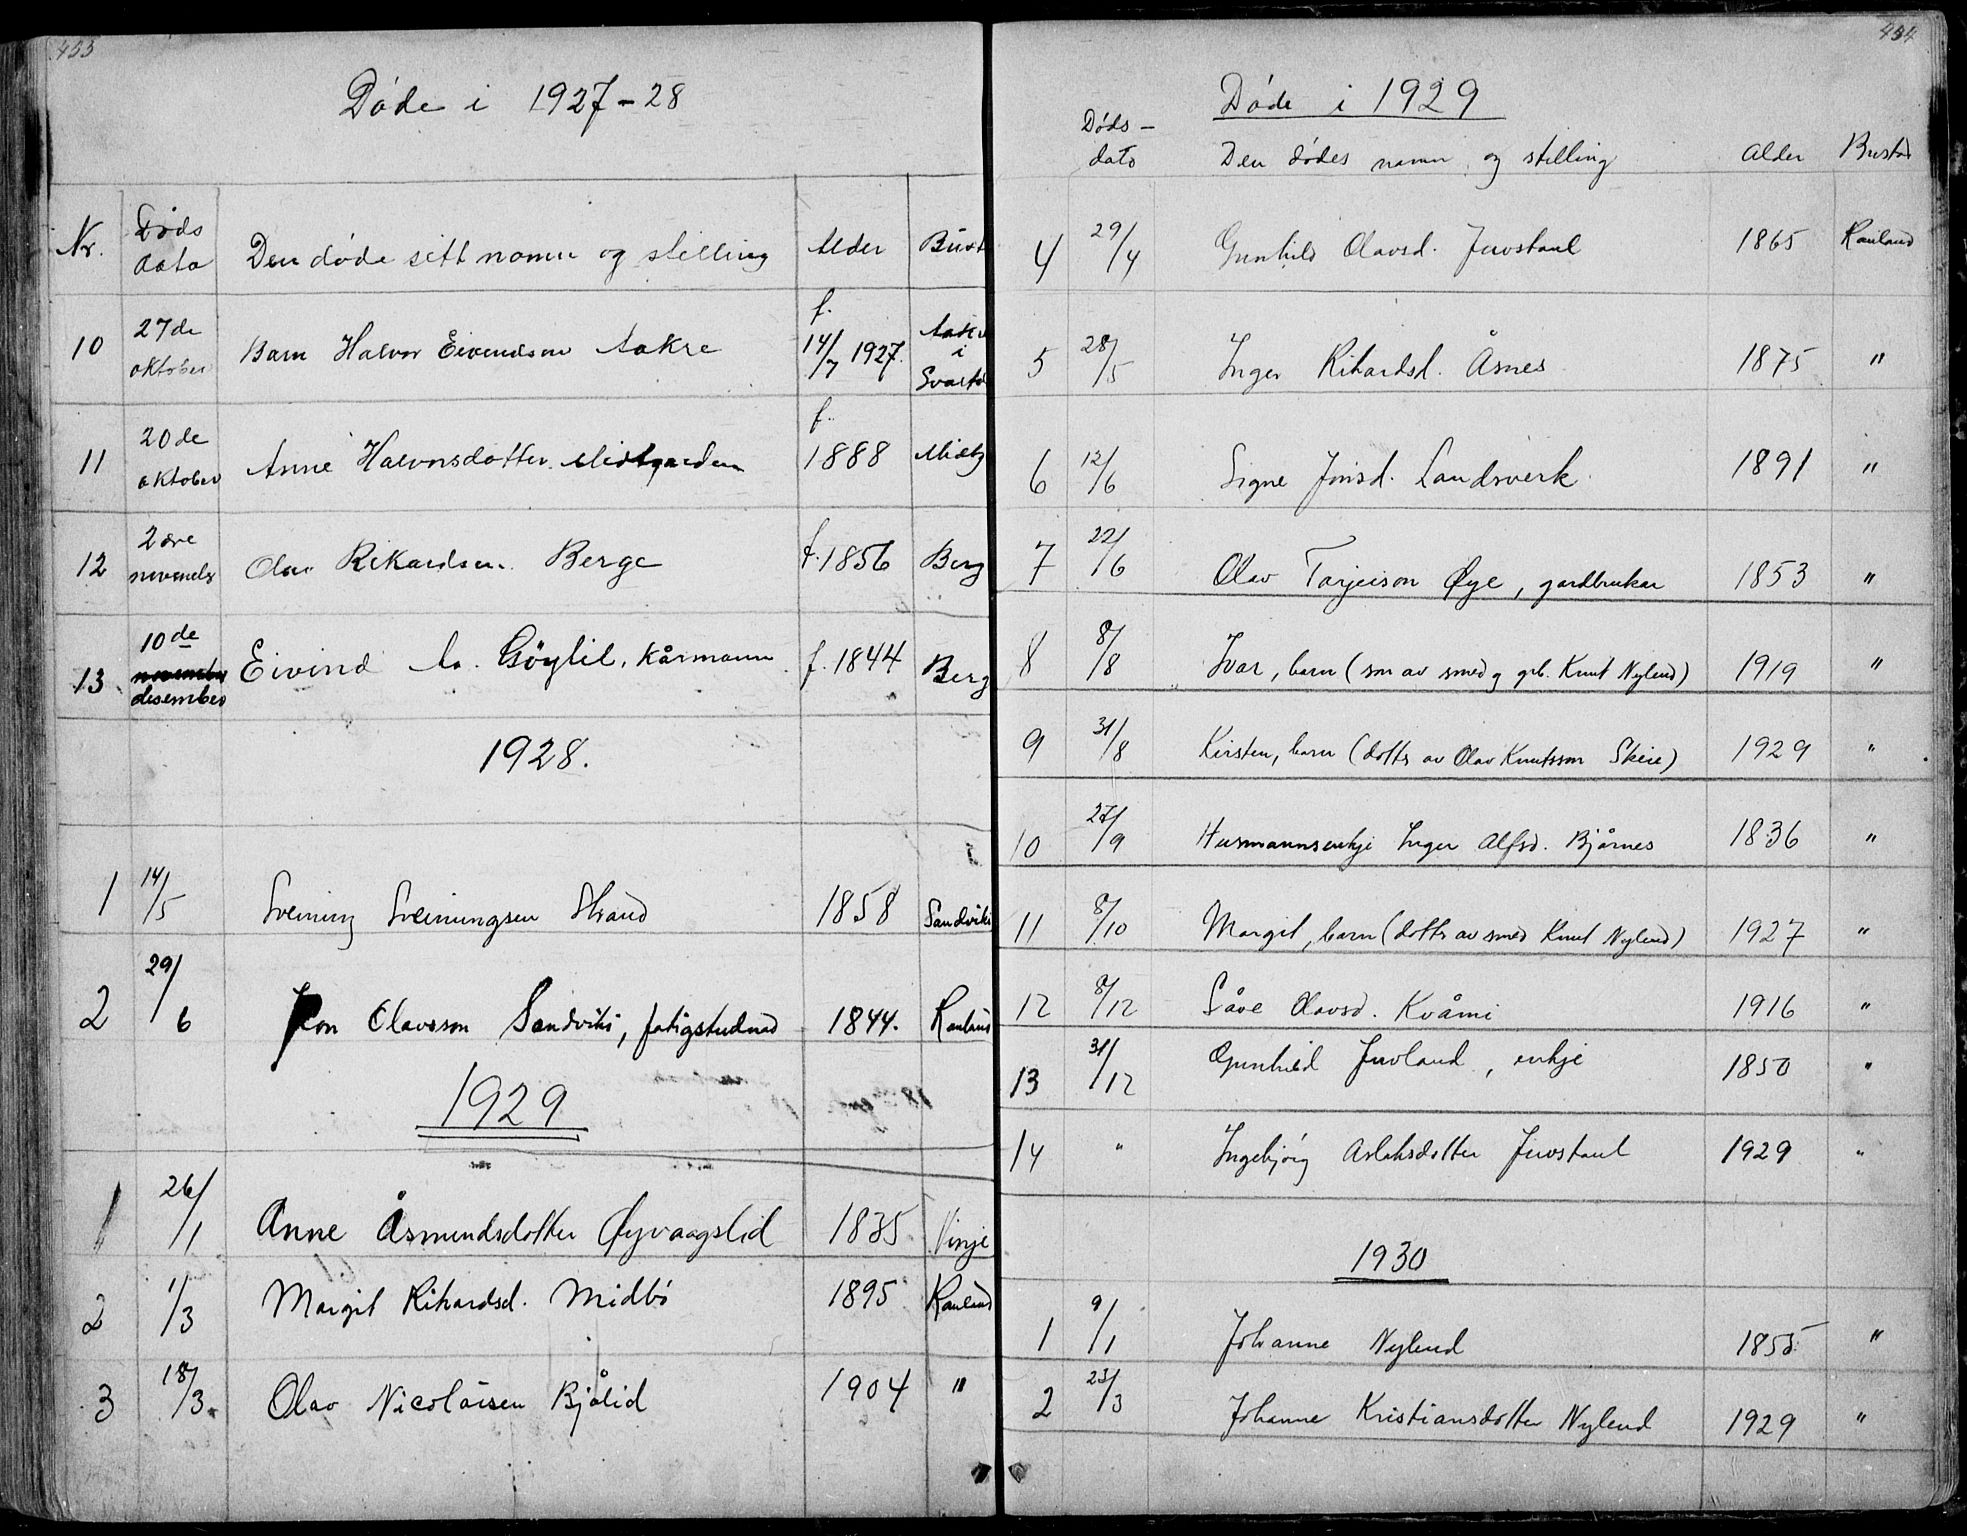 453
Døde i 1927-28
Nr. Døds dato Den døde sitt namn og stilling Alder Bust
10 27de oktober Barn Halvor Eivendson Aakre f. 14/7 1927. Aakre i Svartd
11 20de oktober Anne Halvorsdotter Midtgarden f. 1888 Midtg
12 2are november Olav Rikardsen Berge f. 1856 Berg
13 10de november desember Eivind Aa. Göytil, kårmann f. 1844 Berg
1928.
1 14/5 Sveinung Sveinungsen Strand 1858 Sandviki
2 29/6 Jon Olavsson Sandviki, fatigstudnad 1844. Rauland
1929
1 26/1 Anne Åsmundsdotter Øyvaagslid 1835 Vinje
2 1/3 Margit Rikardsd. Midbø 1895 Rauland
3 18/3. Olav Nicolaisen Bjålid 1904 "
454
Døde i 1929
Døds-dato Den dødes namn og stilling Alder Bustad
4 29/4 Gunhild Olavsd. Juvstaul 1865 Rauland
5 28/5 Inger Rikardsd. Åsnes 1875 "
6 12/6 Signe Jonsd. Landsverk 1891 "
7 22/6 Olav Tarjeison Øye, gardbrukar 1853 "
8 8/8 Ivar, barn (son av smed og grb. Knut Nylend) 1919 "
9 31/8 Kirsten, barn (dotter av Olav Knutsson Skeie) 1929 "
10 27/9 Husmannsenkje Inger Alfsd. Bjårnes 1836 "
11 8/10 Margit, barn (dotter av smed Knut Nylend) 1927 "
12 8/12 Såve Olavsd. Kvåmi 1916 "
13 31/12 Gunhild Juvland, enkje 1850 "
14 " Ingebjörg Aslaksdotter Juvstaul 1929 "
1930
1 9/1 Johanne Nylend 1855 "
2 23/3 Johanne Kristiansdotter Nylend 1929 "